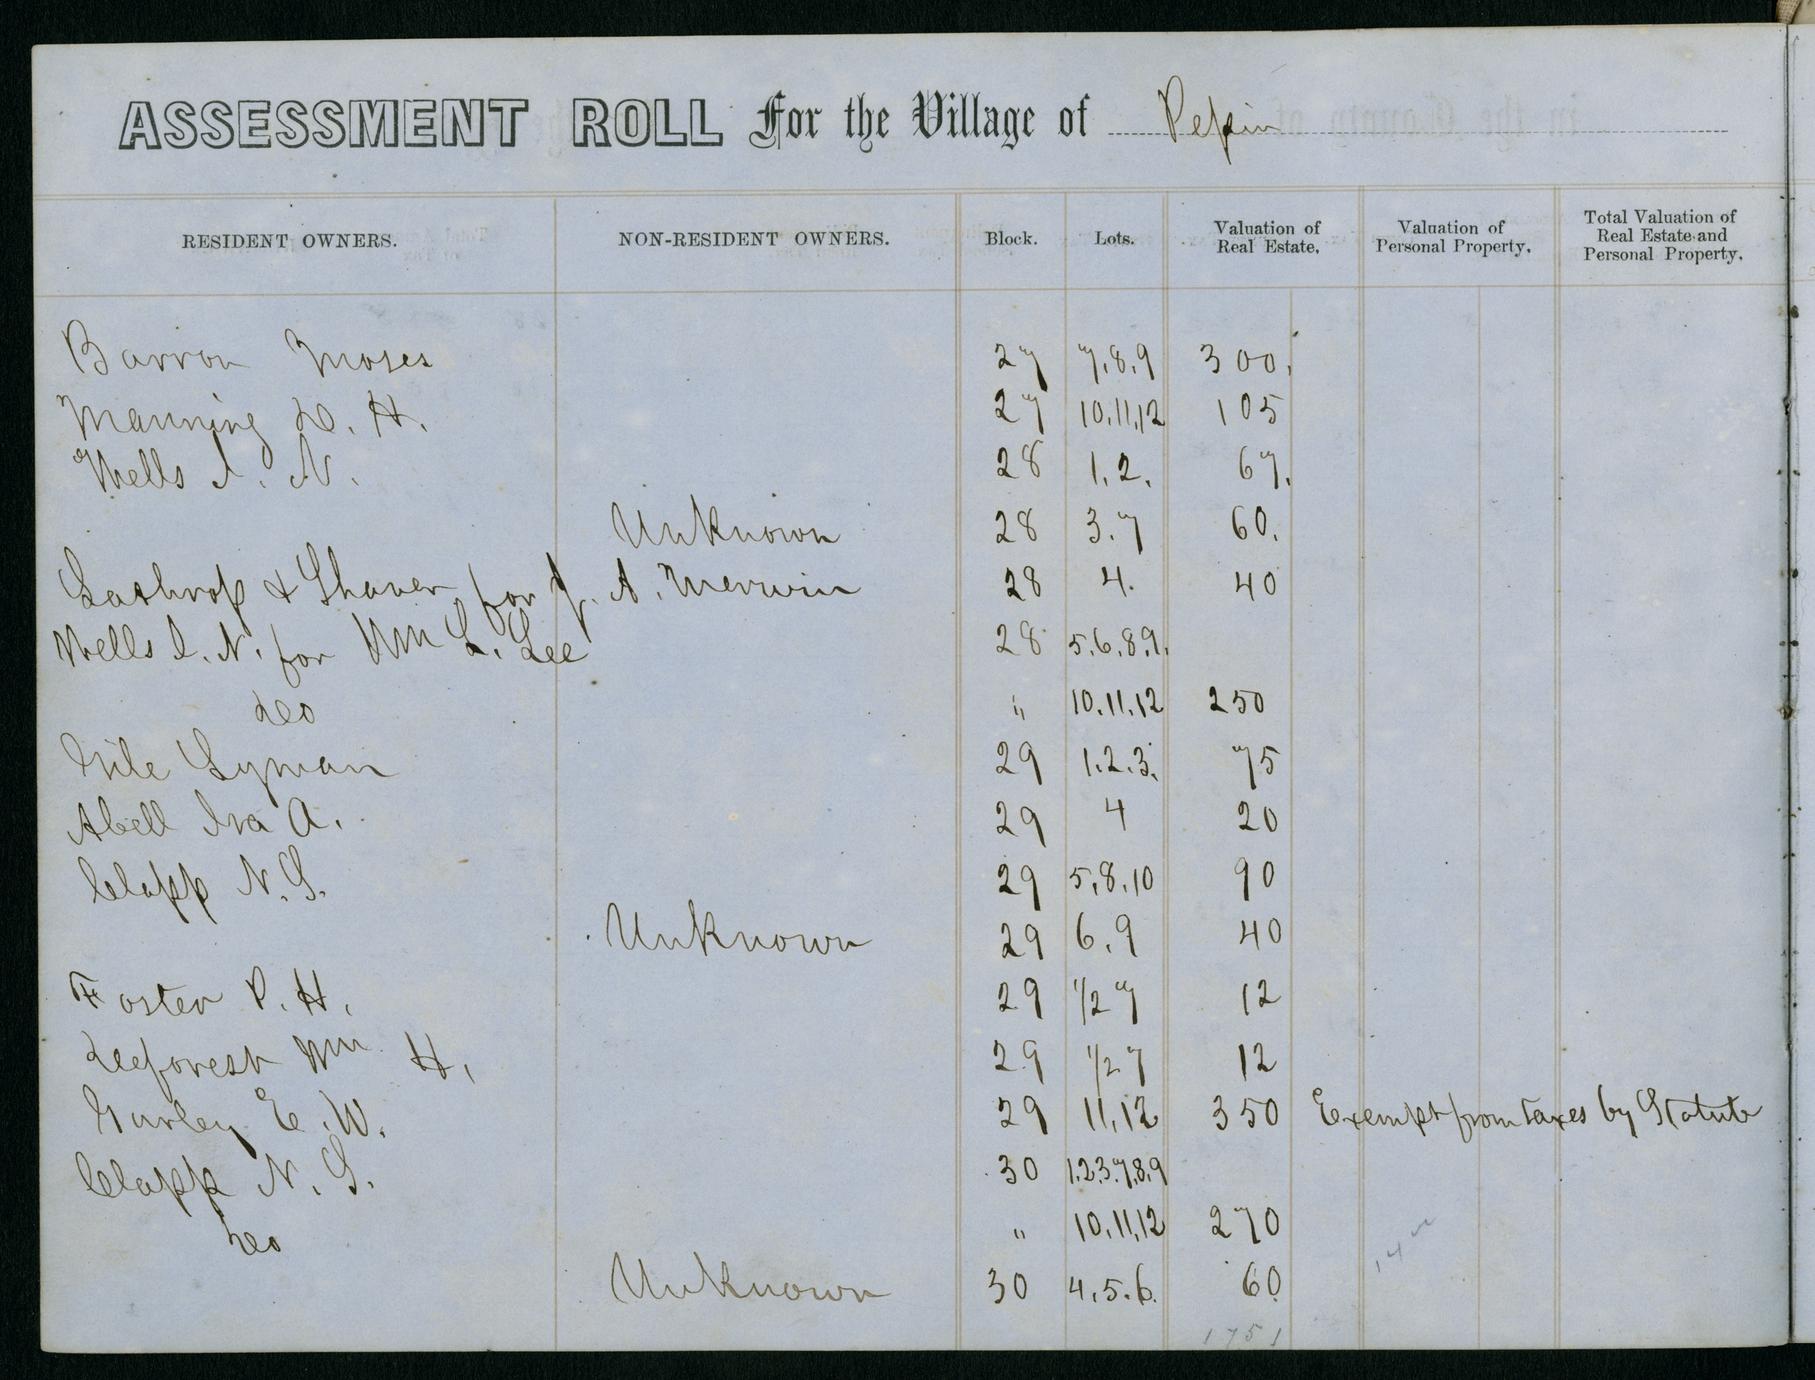 ASSESSMENT ROLL For the Village of Pepin
RESIDENT OWNERS. NON-RESIDENT OWNERS. Block. Lots. Valuation of Real Estate. Valuation of Personal Property. Total Valuation of Real Estate and Personal Property.
Barron Moses 27 7,8,9 300.
Manning D. H. 27 10,11,12 105
Wells I. N. 28 1,2. 67.
Unknown 28 3.7 60.
Lathrop & Shaver for J. A. Merwin 28 4. 40
Wells I. N. for Wm L. Lee 28 5.6.8.9.
do " 10.11.12 250
Hile Lyman 29 1.2.3. 75
Abell Ira A. 29 4 20
Clapp N. S. 29 5,8.10 90
Unknown 29 6,9 40
Foster P. H. 29 1/2 7 12
Deforest Wm H. 29 1/2 7 12
Gurley E. W. 29 11,12 350 Exempt from taxes by Statute
Clapp N. S. 30 1.2.3.7.8.9
do " 10,11,12 270
Unknown 30 4.5.6. 60
1751